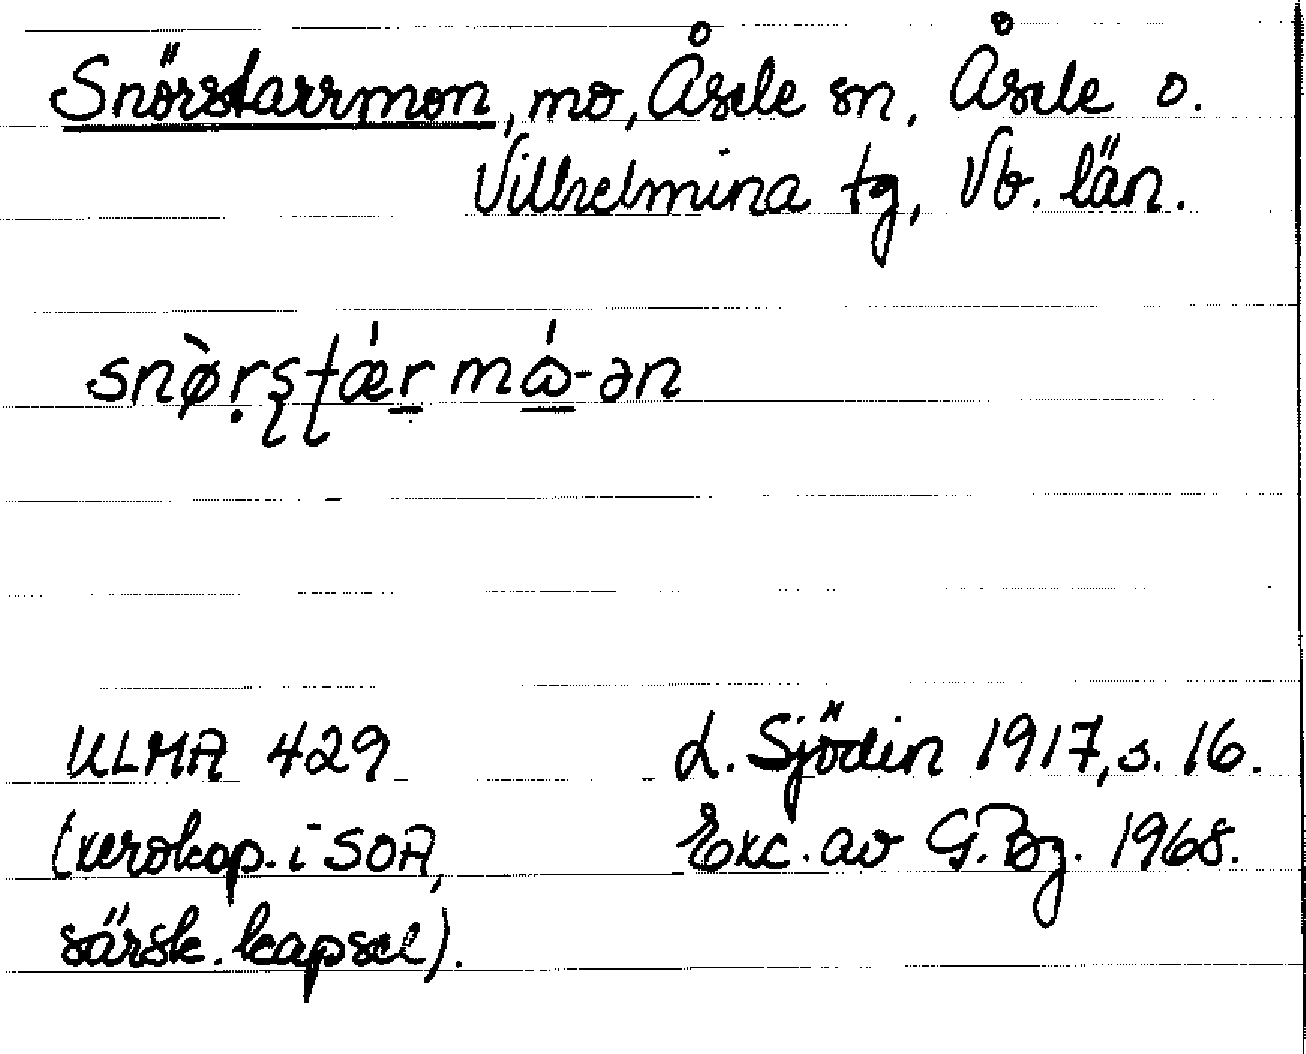 Snörstarrmon, mo, Åsele sn, Åsele o.
Vilhelmina tg, Vb. län.
snø̀ṛʂʈǽr mά-ən
ULMA 429 L. Sjödin 1917, s. 16.
(xerokop. i SOA, Exc. av G. Bg. 1968.
särsk. kapsel).